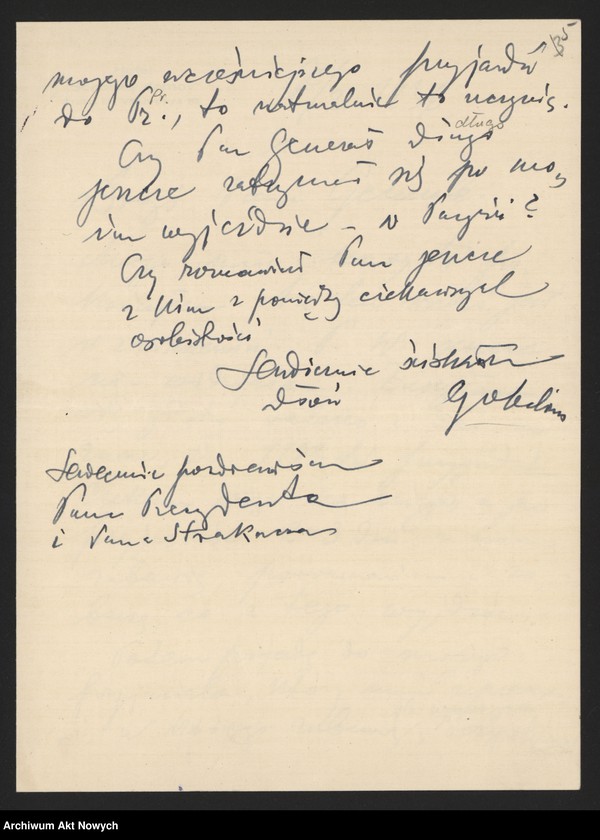 35
mojego wcześniejszego przyjazdu
do Pr., to naturalnie to uczynię.
Czy Pan Generał długo
jeszcze zatrzymał się po mo-
im wyjeździe – w Paryżu?
Czy rozmawiał Pan jeszcze
z kim z pomiędzy ciekawszych
osobistości
Serdecznie ściskam
dłoń
Serdecznie pozdrawiam
Pana Prezydenta
i Pana Strakacza
Archiwum Akt Nowych